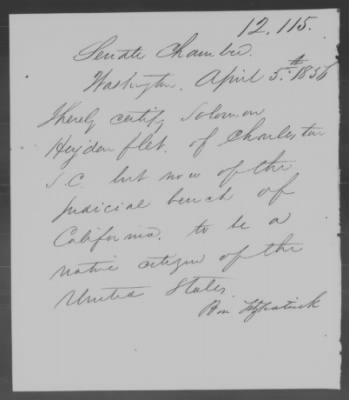 12,115.
Senate Chamber.
Washington. April 5th 1856
I herely certify Solomon
Heydenfeldt. of Charleston
S.C. but now of the
Judicial bench of
California. to be a
native citizen of the
United States
Ben Fitzpatrick